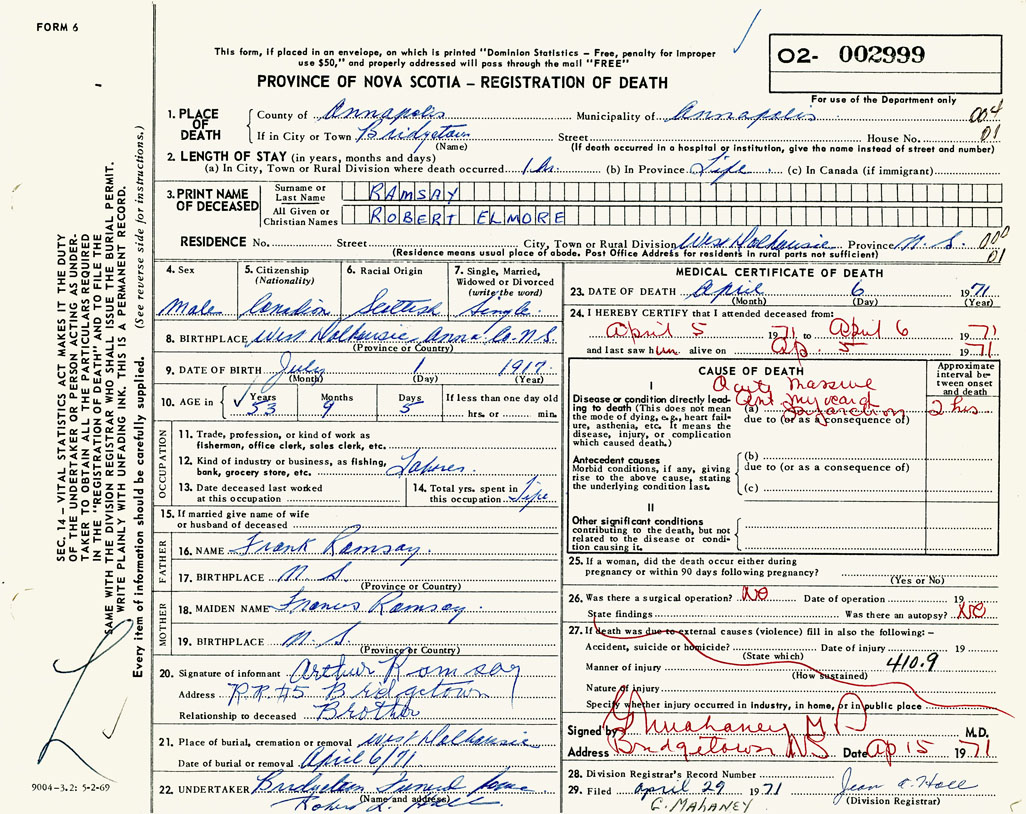 FORM 6
This form, if placed in an envelope, on which is printed "Dominion Statistics – Free, penalty for improper
use $50," and properly addressed will pass through the mail "FREE"
O2- 002999
PROVINCE OF NOVA SCOTIA – REGISTRATION OF DEATH
For use of the Department only
SEC. 14 – VITAL STATISTICS ACT MAKES IT THE DUTY
OF THE UNDERTAKER OR PERSON ACTING AS UNDER-
TAKER TO OBTAIN ALL THE PARTICULARS REQUIRED
IN THE "REGISTRATION OF DEATH" AND TO FILE THE
SAME WITH THE DIVISION REGISTRAR WHO SHALL ISSUE THE BURIAL PERMIT.
WRITE PLAINLY WITH UNFADING INK. THIS IS A PERMANENT RECORD.
Every item of information should be carefully supplied. (See reverse side for instructions.)
1. PLACE OF DEATH
County of Annapolis Municipality of Annapolis 004
If in City or Town Bridgetown Street House No. 01
(Name) (If death occurred in a hospital or institution, give the name instead of street and number)
2. LENGTH OF STAY (in years, months and days)
(a) In City, Town or Rural Division where death occurred (b) In Province Life (c) In Canada (if immigrant)
3. PRINT NAME OF DECEASED
Surname or Last Name RAMSAY
All Given or Christian Names ROBERT ELMORE
RESIDENCE No. Street City, Town or Rural Division West Dalhousie Province N.S. 000
(Residence means usual place of abode. Post Office Address for residents in rural parts not sufficient) 01
4. Sex Male
5. Citizenship (Nationality) Canadian
6. Racial Origin Scottish
7. Single, Married, Widowed or Divorced (write the word) Single
8. BIRTHPLACE West Dalhousie Anna. Co. N.S.
(Province or Country)
9. DATE OF BIRTH July 1 1917
(Month) (Day) (Year)
10. AGE in Years 53 Months 9 Days 5 If less than one day old hrs. or min.
OCCUPATION
11. Trade, profession, or kind of work as
fisherman, office clerk, sales clerk, etc.
12. Kind of industry or business, as fishing,
bank, grocery store, etc. Laborer
13. Date deceased last worked at this occupation
14. Total yrs. spent in this occupation Life
15. If married give name of wife
or husband of deceased
FATHER
16. NAME Frank Ramsay
17. BIRTHPLACE N.S.
(Province or Country)
MOTHER
18. MAIDEN NAME Frances Ramsay
19. BIRTHPLACE N.S.
(Province or Country)
20. Signature of informant Arthur Ramsay
Address R.R. #5 Bridgetown
Relationship to deceased Brother
21. Place of burial, cremation or removal West Dalhousie
Date of burial or removal April 6/71
22. UNDERTAKER Bridgetown Funeral Home
(Name and address)
9004-3.2: 5-2-69
MEDICAL CERTIFICATE OF DEATH
23. DATE OF DEATH April 6 1971
(Month) (Day) (Year)
24. I HEREBY CERTIFY that I attended deceased from:
April 5 1971 to April 6 1971
and last saw him alive on Ap. 5 1971
CAUSE OF DEATH
Approximate interval between onset and death
I
Acute Massive
Disease or condition directly lead-
ing to death (This does not mean
the mode of dying, e.g., heart fail-
ure, asthenia, etc. It means the
disease, injury, or complication
which caused death.)
(a) Ant myocard Infarction 2 hrs
due to (or as a consequence of)
Antecedent causes
Morbid conditions, if any, giving
rise to the above cause, stating
the underlying condition last.
(b)
due to (or as a consequence of)
(c)
II
Other significant conditions
contributing to the death, but not
related to the disease or condi-
tion causing it.
25. If a woman, did the death occur either during
pregnancy or within 90 days following pregnancy?
(Yes or No)
26. Was there a surgical operation? No Date of operation 19
State findings Was there an autopsy? No
27. If death was due to external causes (violence) fill in also the following: –
Accident, suicide or homicide? Date of injury 19
(State which)
Manner of injury 410.9
(How sustained)
Nature of injury
Specify whether injury occurred in industry, in home, or in public place
Signed by G Mahaney M D M.D.
Address Bridgetown NS Date Ap 15 1971
28. Division Registrar's Record Number
29. Filed April 29 1971 Jean A. Hall
G. MAHANEY (Division Registrar)